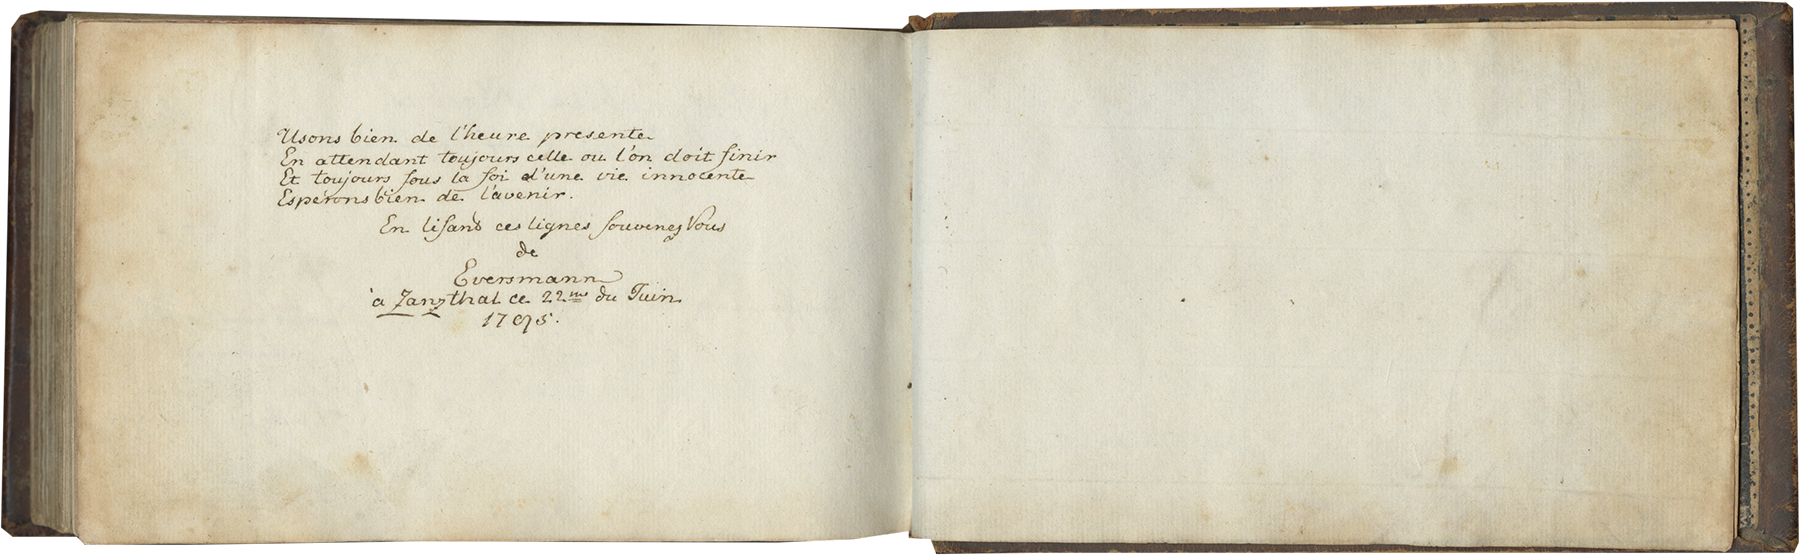 Usons bien de l'heure presente
En attendant toujours celle ou l'on doit finir
Et toujours sous la foi d'une vie innocente
Espérons bien de l'avenir.
En lisant ces lignes souvenez Vous
de
Eversmann
à Zanzthal ce 22me du Juin
1795.